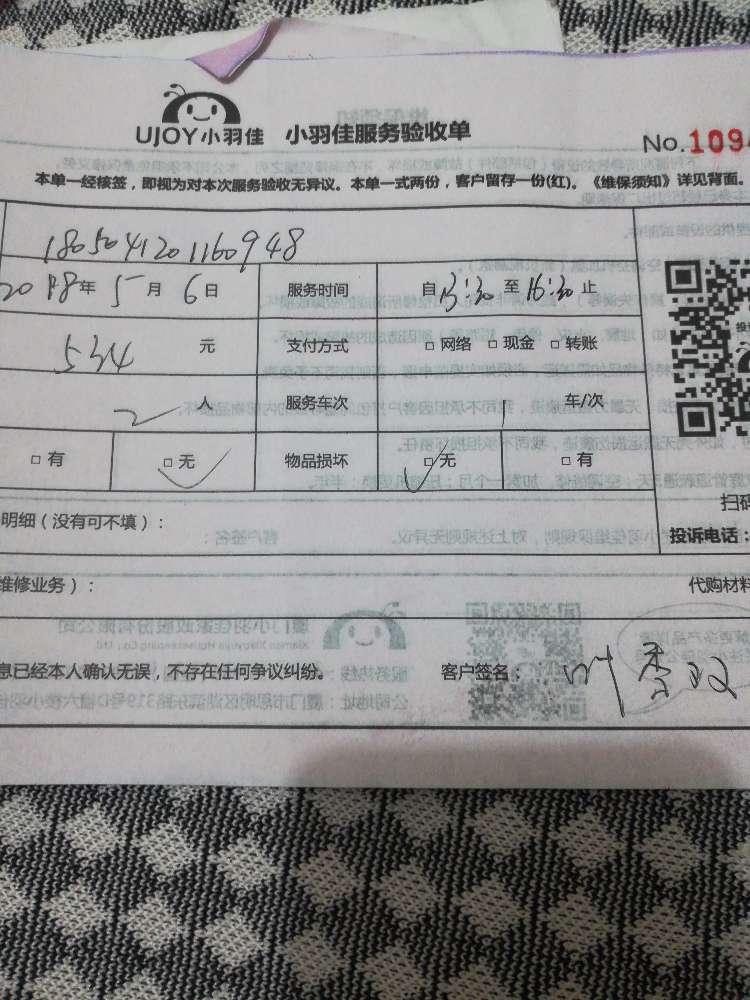 UJOY小羽佳 小羽佳服务验收单
No.1094
本单一经核签，即视为对本次服务验收无异议。本单一式两份，客户留存一份(红)。《维保须知》详见背面。
1805041201160948
2018年5月6日 服务时间 自13:30至16:30止
534元 支付方式 □网络 □现金 □转账
2人 服务车次 1车/次
□有 □无 物品损坏 □无 □有
扫码
明细（没有可不填）：
投诉电话：
维修业务）：
代购材料
息已经本人确认无误，不存在任何争议纠纷。 客户签名：